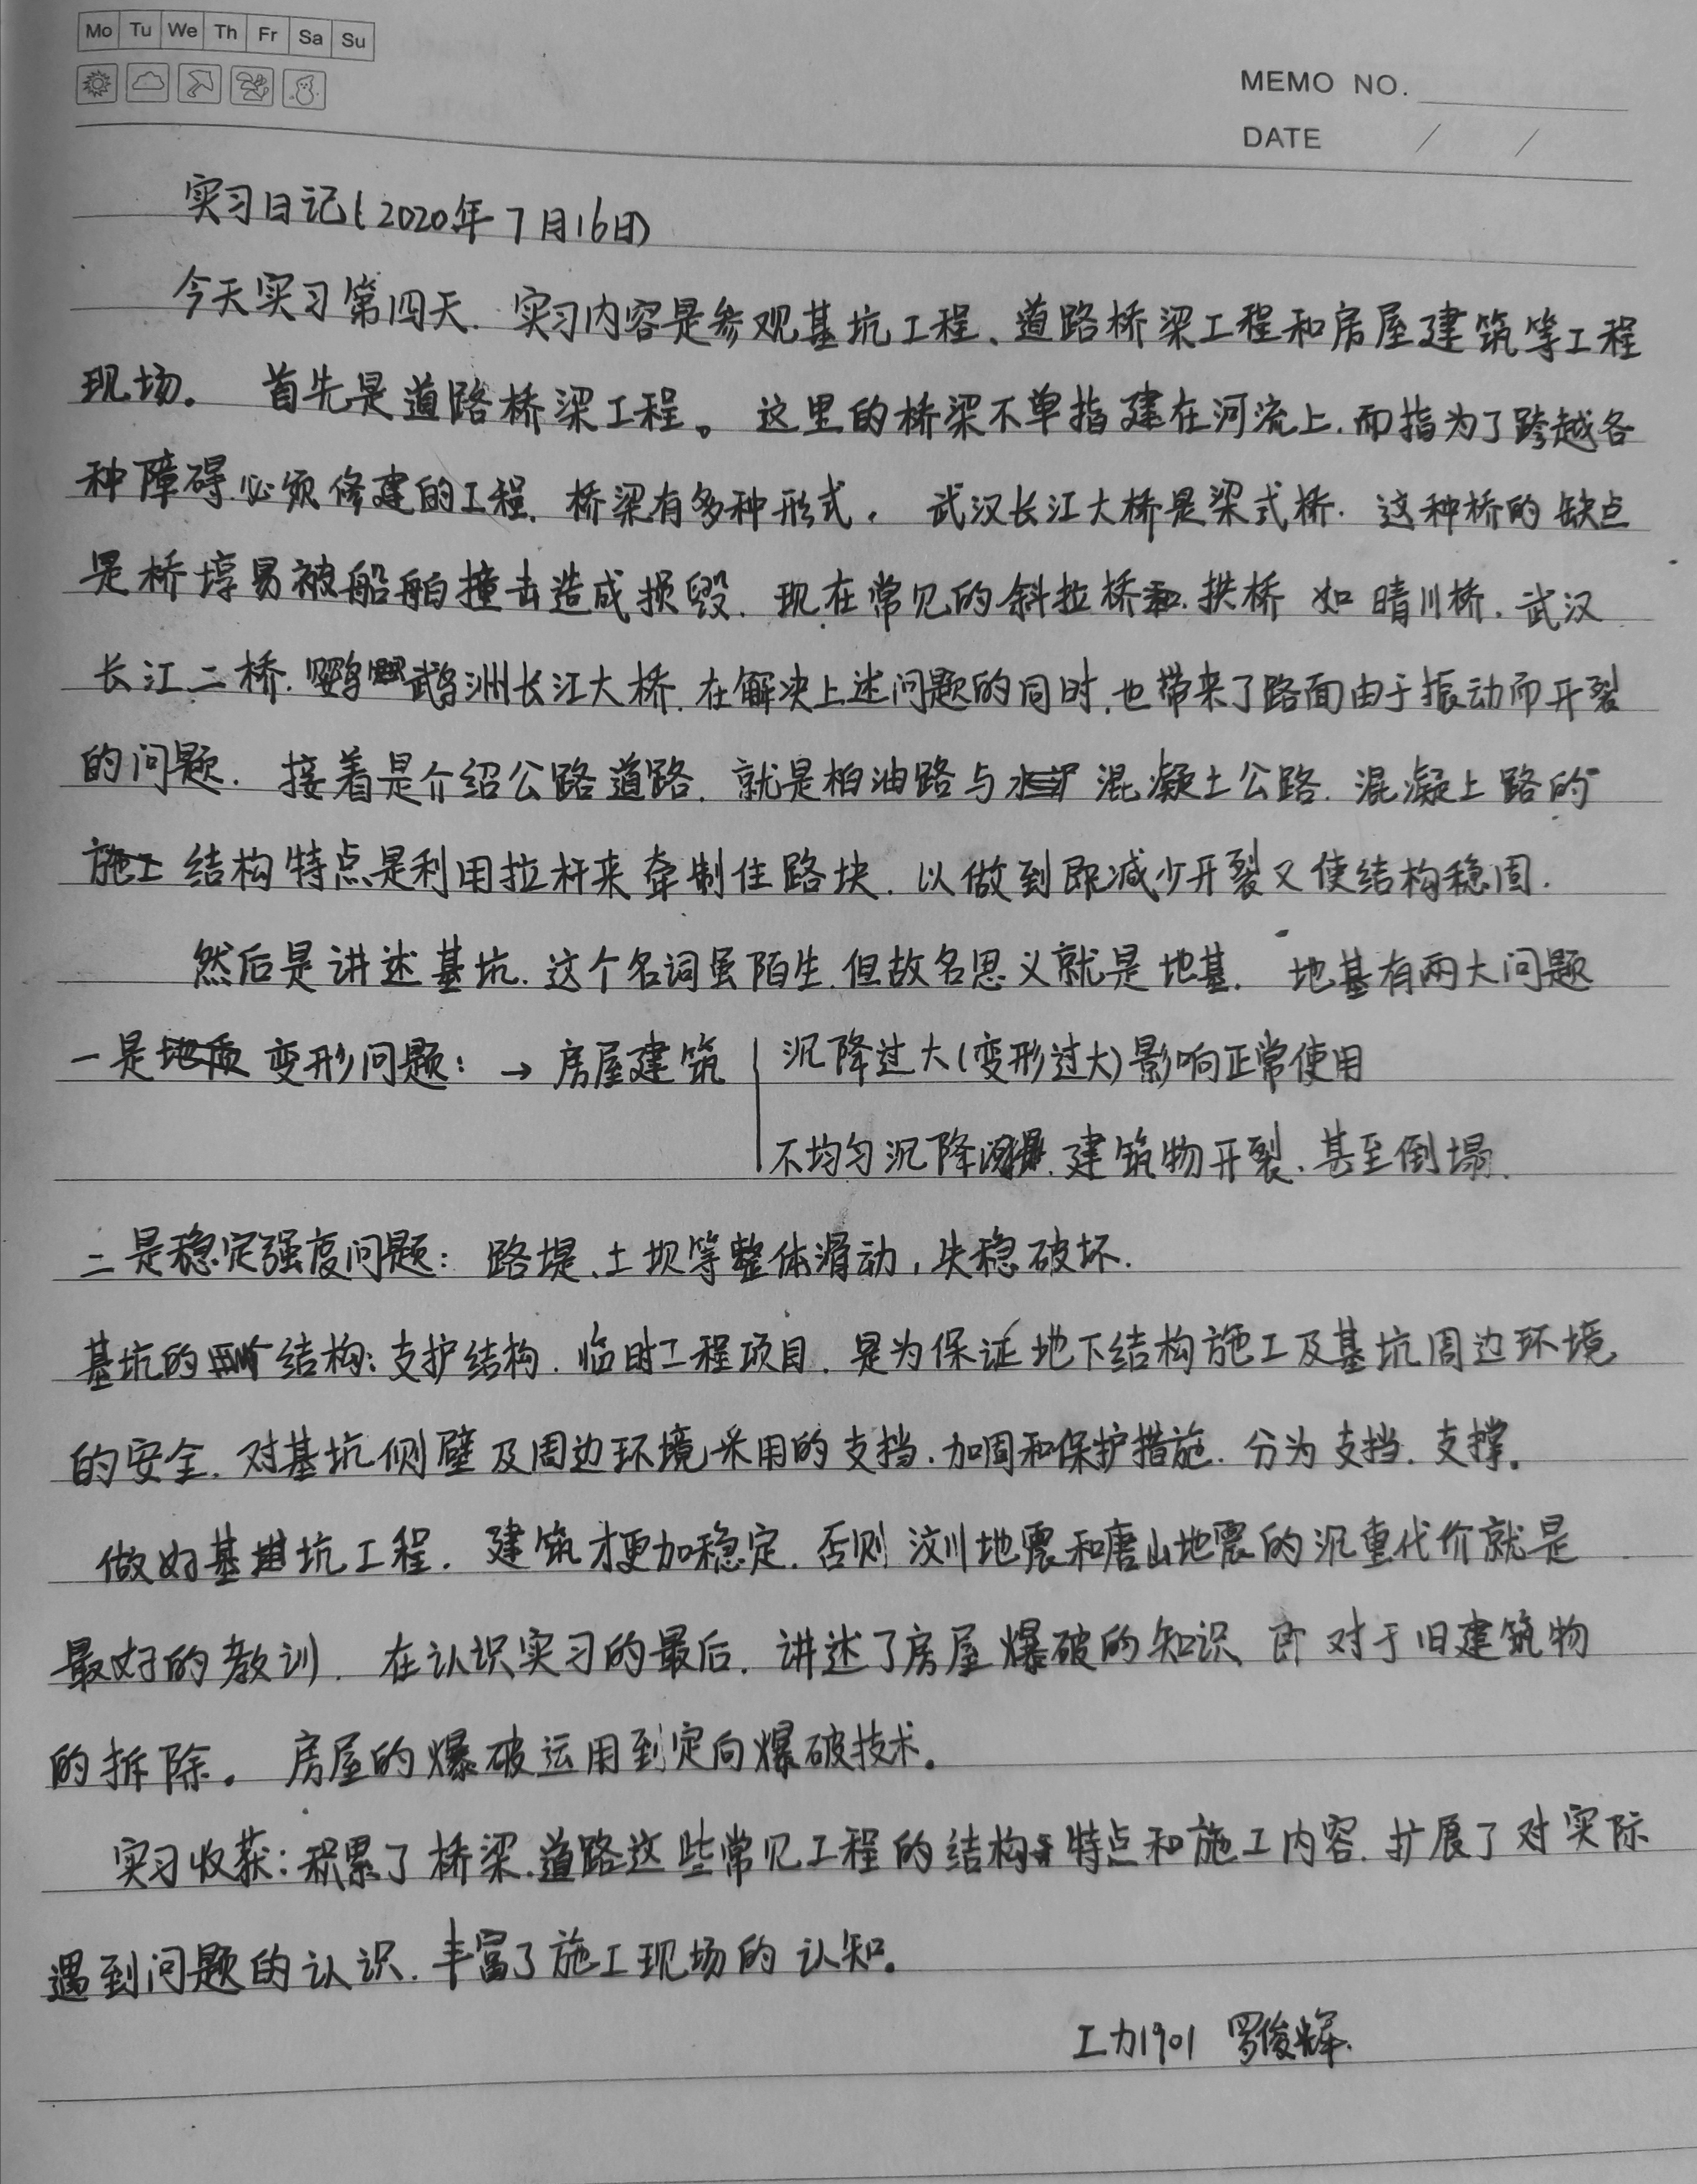 Mo Tu We Th Fr Sa Su
MEMO NO.
DATE / /
实习日记(2020年7月16日)
今天实习第四天. 实习内容是参观基坑工程、道路桥梁工程和房屋建筑等工程
现场。 首先是道路桥梁工程。 这里的桥梁不单指建在河流上.而指为了跨越各
种障碍.必须修建的工程. 桥梁有多种形式. 武汉长江大桥是梁式桥. 这种桥的缺点
是桥墩易被船舶撞击造成损毁. 现在常见的斜拉桥和.拱桥 如 晴川桥.武汉
长江二桥.鹦鹉洲长江大桥.在解决上述问题的同时.也带来了路面由于振动而开裂
的问题. 接着是介绍公路道路. 就是柏油路与混凝土公路. 混凝土路的
结构特点是利用拉杆来牵制住路块. 以做到即减少开裂又使结构稳固.
然后是讲述基坑.这个名词虽陌生.但故名思义就是地基. 地基有两大问题
一是变形问题: → 房屋建筑 沉降过大(变形过大)影响正常使用
不均匀沉降.建筑物开裂、甚至倒塌.
二是稳定强度问题: 路堤、土坝等整体滑动,失稳破坏.
基坑的结构:支护结构. 临时工程项目. 是为保证地下结构施工及基坑周边环境
的安全. 对基坑侧壁及周边环境采用的支挡.加固和保护措施. 分为支挡.支撑。
做好基坑工程. 建筑才更加稳定.否则汶川地震和唐山地震的沉重代价就是
最好的教训. 在认识实习的最后. 讲述了房屋爆破的知识 即对于旧建筑物
的拆除。 房屋的爆破运用到定向爆破技术。
实习收获:积累了桥梁.道路这些常见工程的结构特点和施工内容.扩展了对实际
遇到问题的认识.丰富了施工现场的认知。
工力1901 罗俊辉.